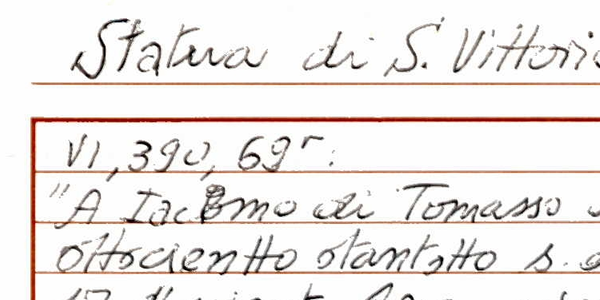 Statua di S. Vittorio
VI, 390, 69r:
"A Iacomo di Tomasso
ottocientto otantotto s.